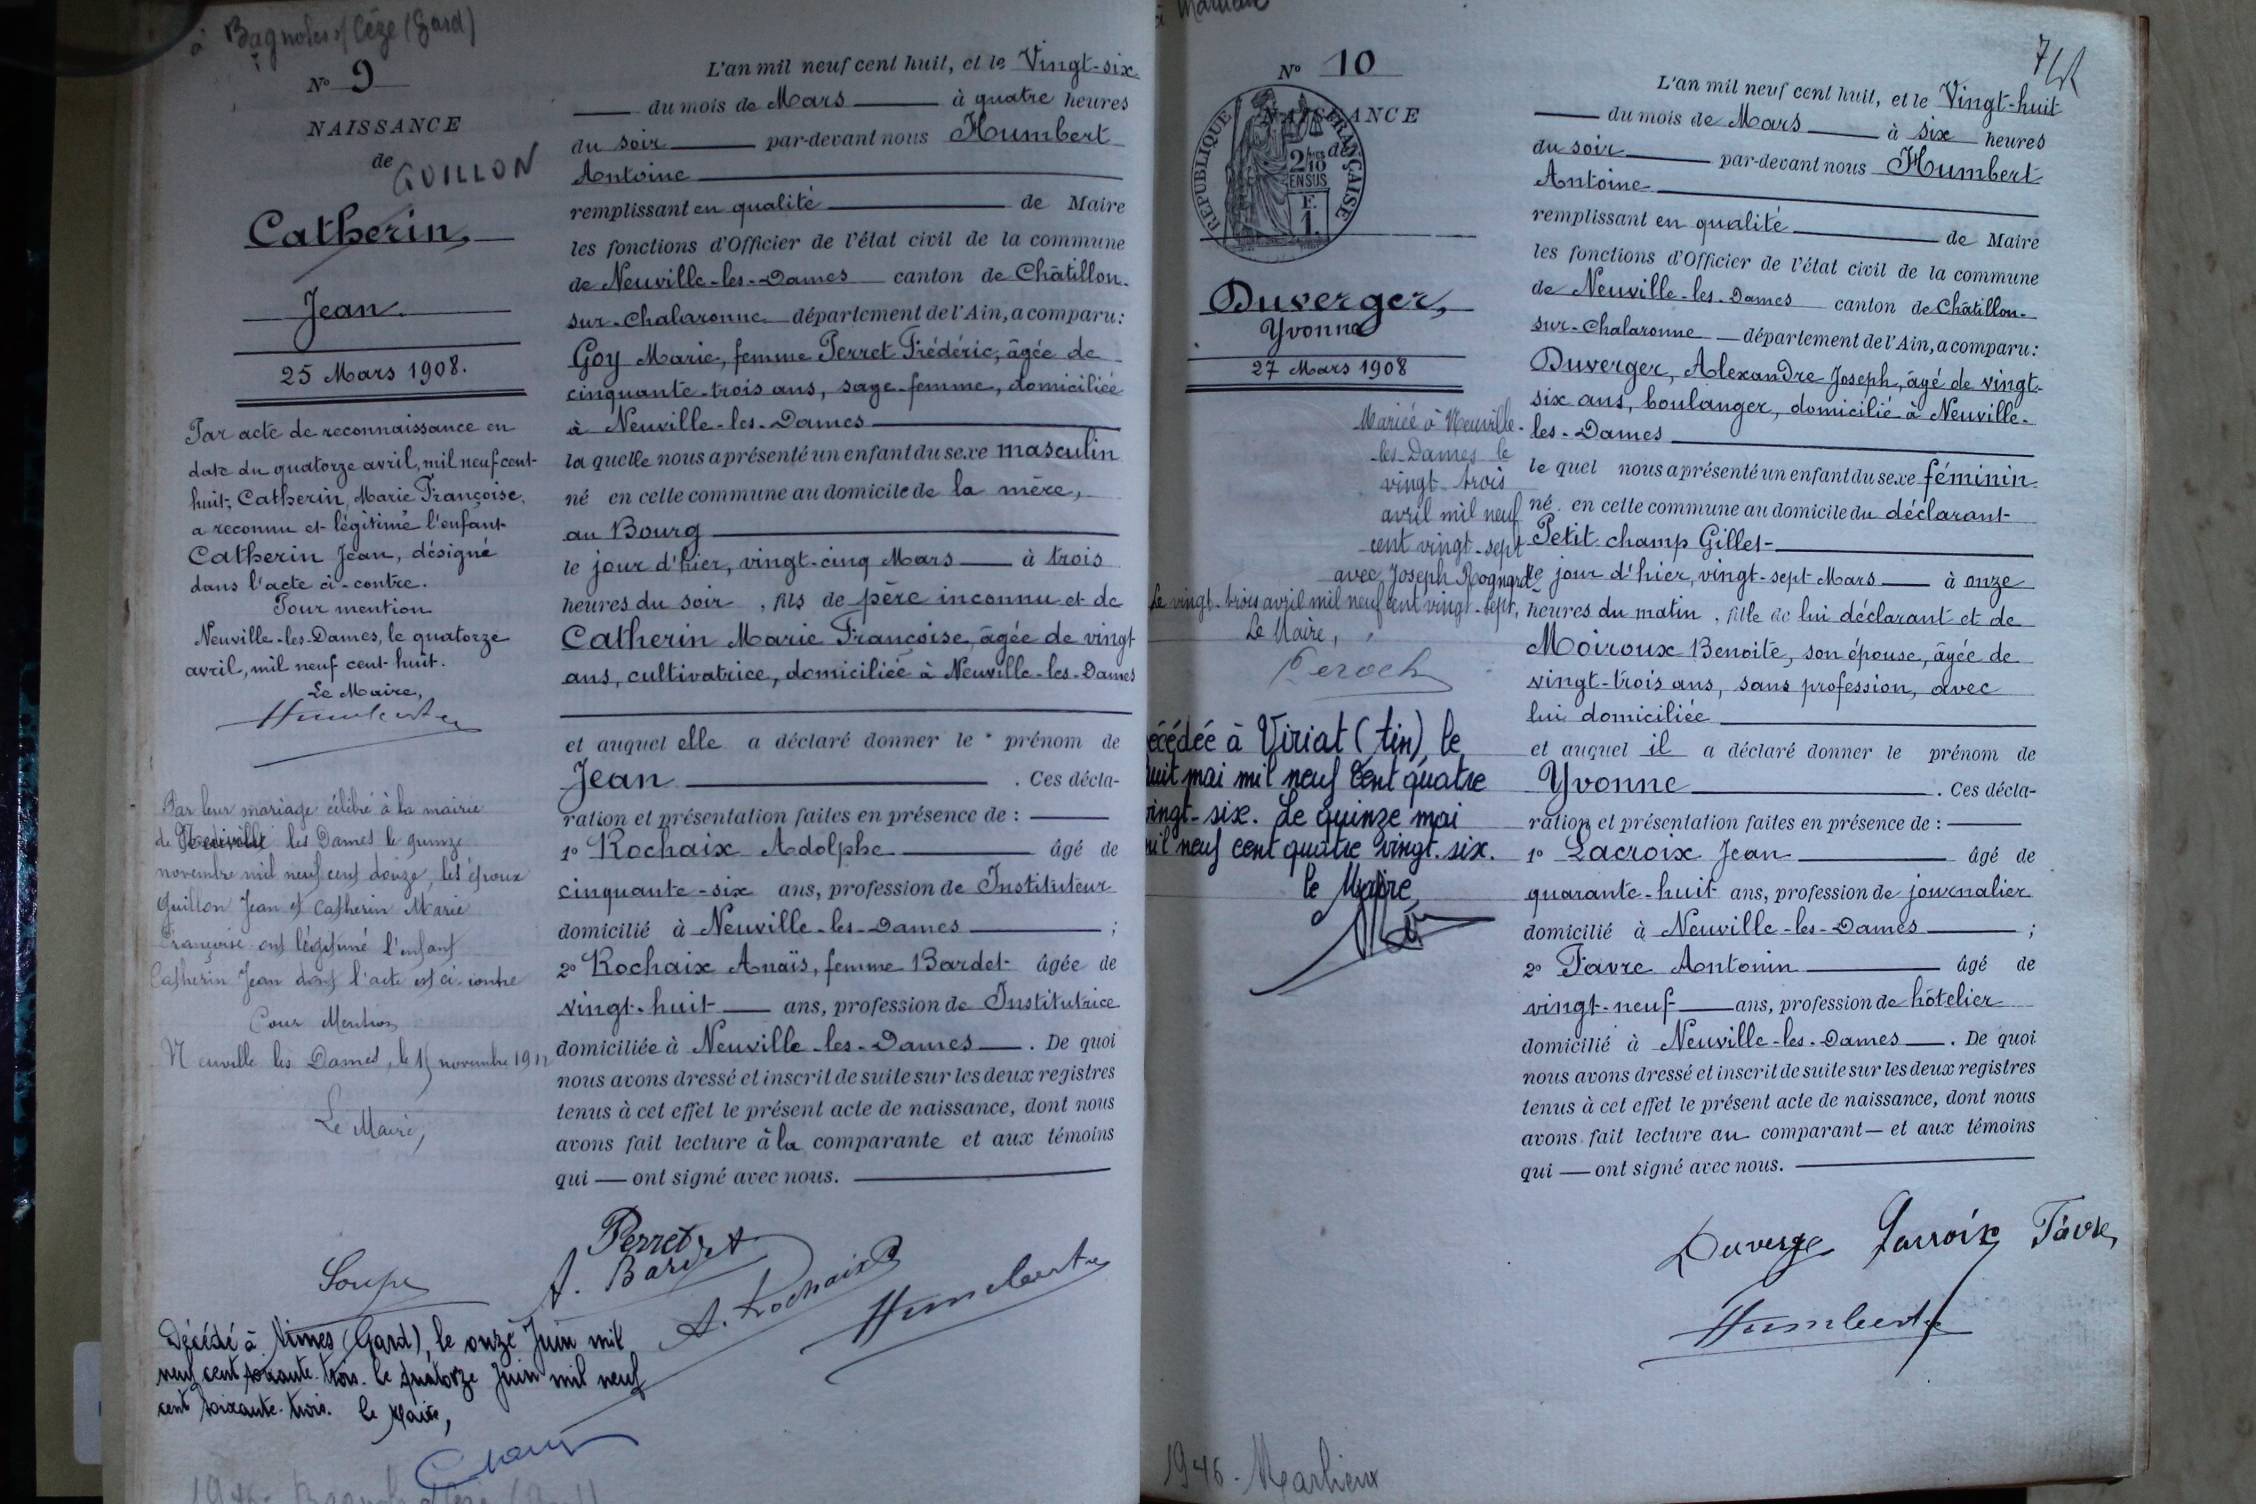 à Bagnols s/ Cèze (Gard)
N° 9
NAISSANCE
de GUILLON
Catherin,
Jean.
25 Mars 1908.
Par acte de reconnaissance en
date du quatorze avril, mil neuf cent-
huit, Catherin, Marie Françoise,
a reconnu et légitimé l'enfant
Catherin Jean, désigné
dans l'acte ci-contre.
Pour mention
Neuville-les-Dames, le quatorze
avril, mil neuf cent huit.
Le Maire,
Humbert
Par leur mariage célébré à la mairie
de Neuville les Dames le quinze
novembre mil neuf cent douze, les époux
Guillon Jean et Catherin Marie
Françoise ont légitimé l'enfant
Catherin Jean dont l'acte est ci-contre
Pour Mention
Neuville les Dames, le 15 novembre 1912
Le Maire,
Décédé à Nîmes (Gard), le onze Juin mil
neuf cent soixante-trois. le quatorze Juin mil neuf
cent soixante-trois. le Maire,
L'an mil neuf cent huit, et le Vingt-six
du mois de Mars à quatre heures
du soir par-devant nous Humbert
Antoine
remplissant en qualité de Maire
les fonctions d'Officier de l'état civil de la commune
de Neuville-les-Dames canton de Châtillon-
sur-Chalaronne département de l'Ain, a comparu:
Goy Marie, femme Perret Frédéric, âgée de
cinquante-trois ans, sage-femme, domiciliée
à Neuville-les-Dames
la quelle nous a présenté un enfant du sexe masculin
né en cette commune au domicile de la mère,
au Bourg
le jour d'hier, vingt-cinq Mars à trois
heures du soir, fils de père inconnu et de
Catherin Marie Françoise, âgée de vingt
ans, cultivatrice, domiciliée à Neuville-les-Dames
et auquel elle a déclaré donner le prénom de
Jean . Ces décla-
ration et présentation faites en présence de :
1° Rochaix Adolphe âgé de
cinquante-six ans, profession de Instituteur
domicilié à Neuville-les-Dames ;
2° Rochaix Anaïs, femme Bardet âgée de
vingt-huit ans, profession de Institutrice
domiciliée à Neuville-les-Dames . De quoi
nous avons dressé et inscrit de suite sur les deux registres
tenus à cet effet le présent acte de naissance, dont nous
avons fait lecture à la comparante et aux témoins
qui — ont signé avec nous.
Perret
A. Bardet
A. Rochaix
Humbert
N° 10
NAISSANCE
de
RÉPUBLIQUE FRANÇAISE
Duverger,
Yvonne
27 Mars 1908
Mariée à Neuville-
les-Dames le
vingt trois
avril mil neuf
cent vingt-sept
avec Joseph Rognard
Le vingt-trois avril mil neuf cent vingt-sept,
Le Maire,
écédée à Viriat (Ain) le
huit mai mil neuf cent quatre
vingt-six. Le quinze mai
mil neuf cent quatre vingt-six.
le Maire,
1946 - Marlieux
L'an mil neuf cent huit, et le Vingt-huit
du mois de Mars à six heures
du soir par-devant nous Humbert
Antoine
remplissant en qualité de Maire
les fonctions d'Officier de l'état civil de la commune
de Neuville-les-Dames canton de Châtillon-
sur-Chalaronne département de l'Ain, a comparu:
Duverger, Alexandre Joseph, âgé de vingt-
six ans, boulanger, domicilié à Neuville-
les-Dames
le quel nous a présenté un enfant du sexe féminin
né en cette commune au domicile du déclarant
Petit champ Gillet
le jour d'hier, vingt-sept Mars à onze
heures du matin, fille de lui déclarant et de
Moiroux Benoite, son épouse, âgée de
vingt-trois ans, sans profession, avec
lui domiciliée
et auquel il a déclaré donner le prénom de
Yvonne . Ces décla-
ration et présentation faites en présence de :
1° Lacroix Jean âgé de
quarante-huit ans, profession de journalier
domicilié à Neuville-les-Dames ;
2° Favre Antonin âgé de
vingt-neuf ans, profession de hôtelier
domicilié à Neuville-les-Dames . De quoi
nous avons dressé et inscrit de suite sur les deux registres
tenus à cet effet le présent acte de naissance, dont nous
avons fait lecture au comparant — et aux témoins
qui — ont signé avec nous.
Duverger Lacroix Favre
Humbert